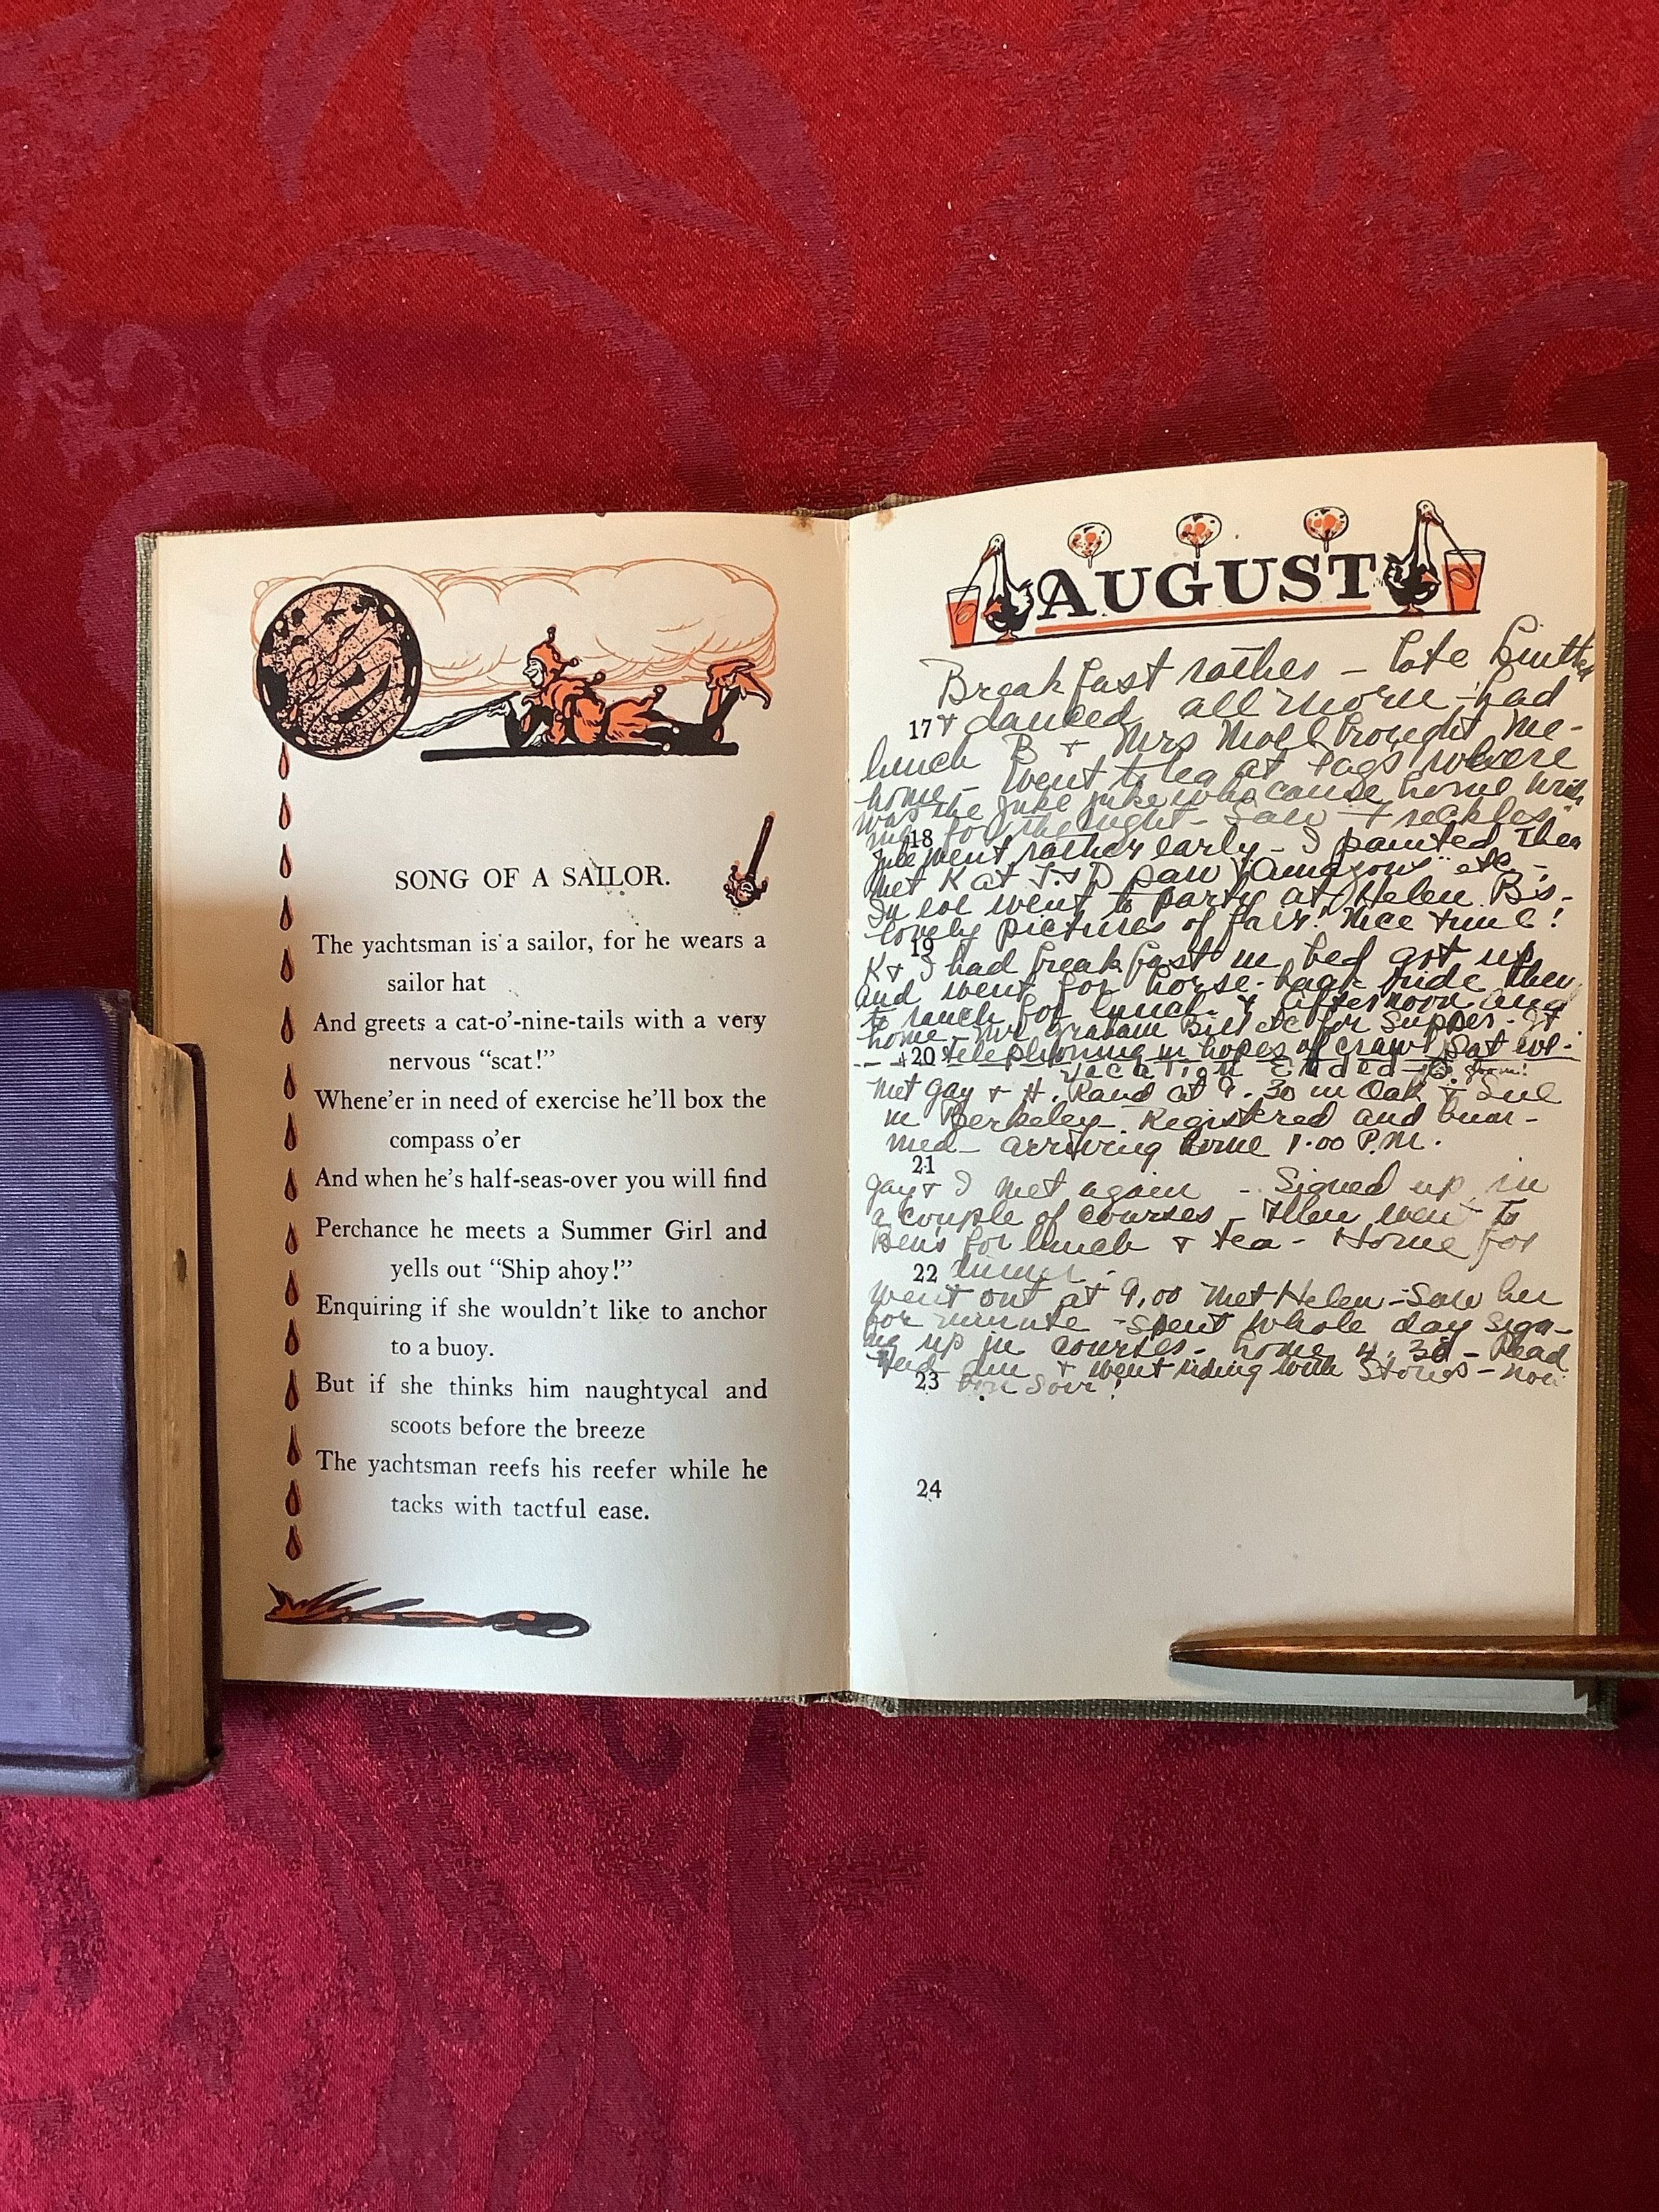 SONG OF A SAILOR.
The yachtsman is a sailor, for he wears a
sailor hat
And greets a cat-o'-nine-tails with a very
nervous "scat!"
Whene'er in need of exercise he'll box the
compass o'er
And when he's half-seas-over you will find
Perchance he meets a Summer Girl and
yells out "Ship ahoy!"
Enquiring if she wouldn't like to anchor
to a buoy.
But if she thinks him naughtycal and
scoots before the breeze
The yachtsman reefs his reefer while he
tacks with tactful ease.
AUGUST
Breakfast rather - late
17 + danced all morn - had
lunch B + Mrs Moll brought me
home - went to tea at Pags where
was the Juke who came home with
me for the night - Saw "Freckles"
18
went rather early - I painted then
met K at T. + D saw "Amazons" etc -
In eve went to party at Helen B's -
lovely pictures of fair. Nice time!
19
K + I had breakfast in bed got up
and went for horse-back ride then
to ranch for lunch & afternoon and
home - Mr Graham Bill etc for supper -
20 telephoning in hopes of crawl Sat eve -
vacation Ended -
Met Gay + H. Rand at 9.30 in Oak +
in Berkeley. Registered and bum-
med - arriving home 1.00 P.M.
21
Gay + I met again - Signed up in
a couple of courses - then went to
for lunch + tea - Home for
22 dinner -
Went out at 9.00 Met Helen - Saw her
for minute - spent whole day sign-
ing up in courses - home 4.30 - Read
+ went riding with Stones -
23
24